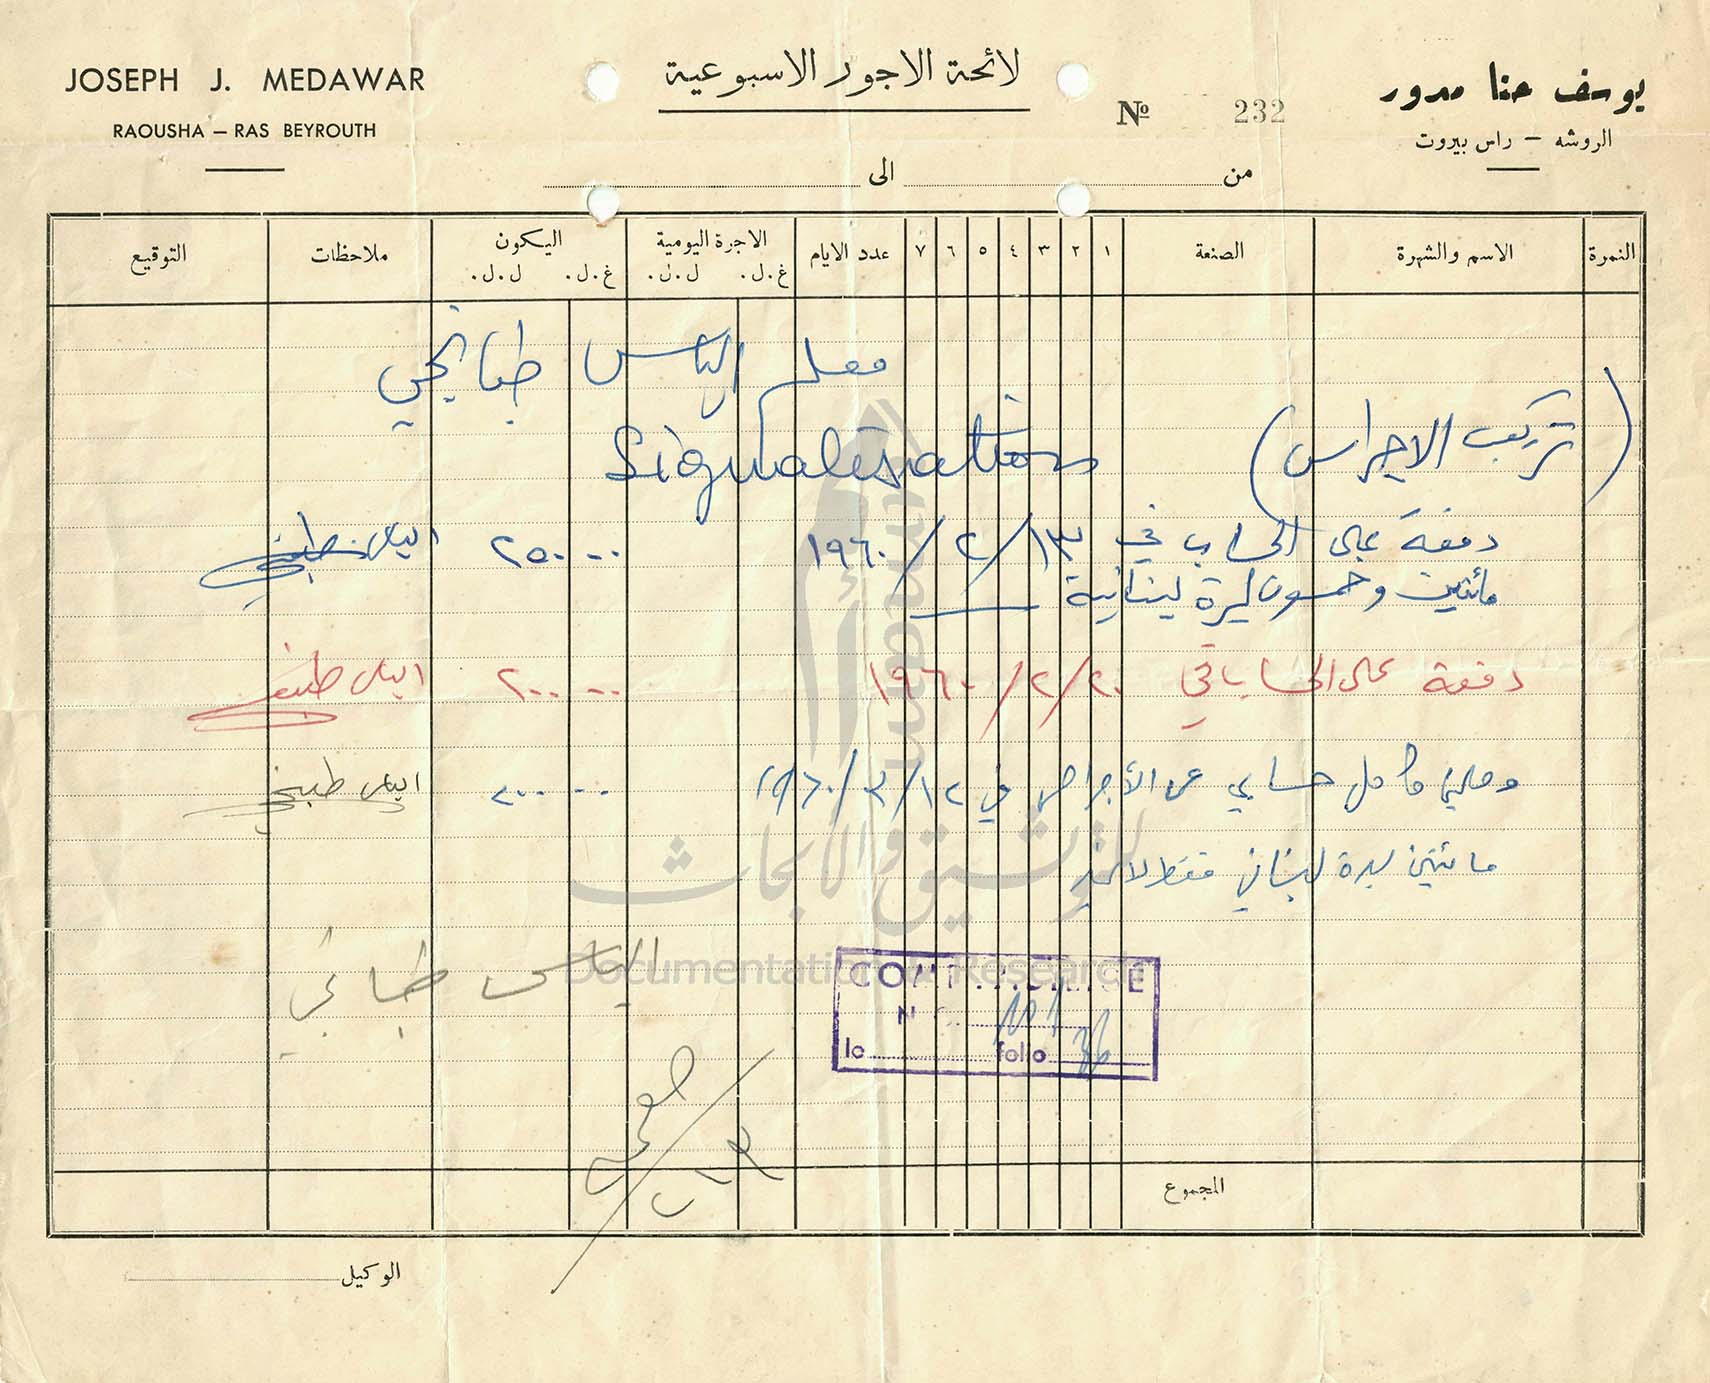 JOSEPH J. MEDAWAR
RAOUSHA – RAS BEYROUTH
لائحة الاجور الاسبوعية
№ 232
يوسف حنا مدور
الروشه – راس بيروت
من الى
النمرة الاسم والشهرة الصنعة ١ ٢ ٣ ٤ ٥ ٦ ٧ عدد الايام الاجرة اليومية اليكون ملاحظات التوقيع
غ.ل. ل.ل. غ.ل. ل.ل.
معلم الياس طباخي
(تركيب الاجراس) Signalisation
دفعة على الحساب في ١٣/٢/١٩٦٠ ٢٥٠٠٠ الياس طبخي
مائتين وخمسون ليرة لبنانية
دفعة على الحساب في ٢٠/٢/١٩٦٠ ٢٠٠٠٠ الياس طبخي
وصلني كامل حسابي عن الأجراس في ١٢/٣/١٩٦٠ ٢٠٠٠٠ الياس طبخي
مائتين ليرة لبناني فقط لا غير
الياس طباخي
COMPTABILITE
N
le folio
المجموع
الوكيل
Documentation & Research
للتوثيق والأبحاث